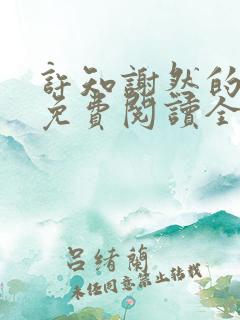 許知謝然的
免費閱讀全
呂緒蘭
未经同意禁止转载